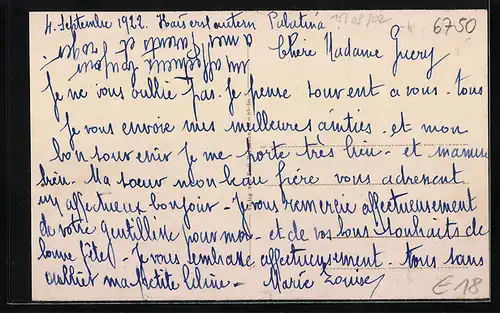 4. Septembre 1922. Kaiserslautern Palatina
15/09/02
6750
Chère Madame Guery
un affectueux bonjour
a mes parents et
Je ne vous oublie pas. Je pense souvent a vous - tous
Je vous envoie mes meilleures amities - et mon
bon souvenir Je me porte très bien - et maman
bien. Ma soeur mon beau frère vous adressent
un affectueux bonjour - Je vous remercie affectueusement
de votre gentillesse pour moi - et de vos bons souhaits de
bonne fête - Je vous embrasse affectueusement - tous sans
oublier ma petite Line - Marie Louise
€ 18